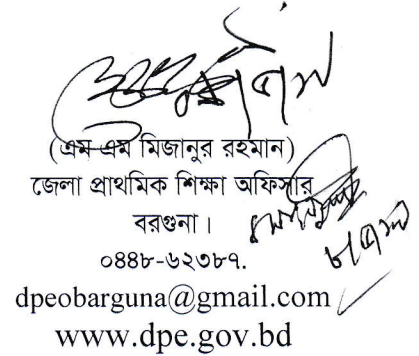 (এম এম মিজানুর রহমান)
জেলা প্রাথমিক শিক্ষা অফিসার
বরগুনা।
০৪৪৮-৬২৩৮৭.
dpeobarguna@gmail.com
www.dpe.gov.bd